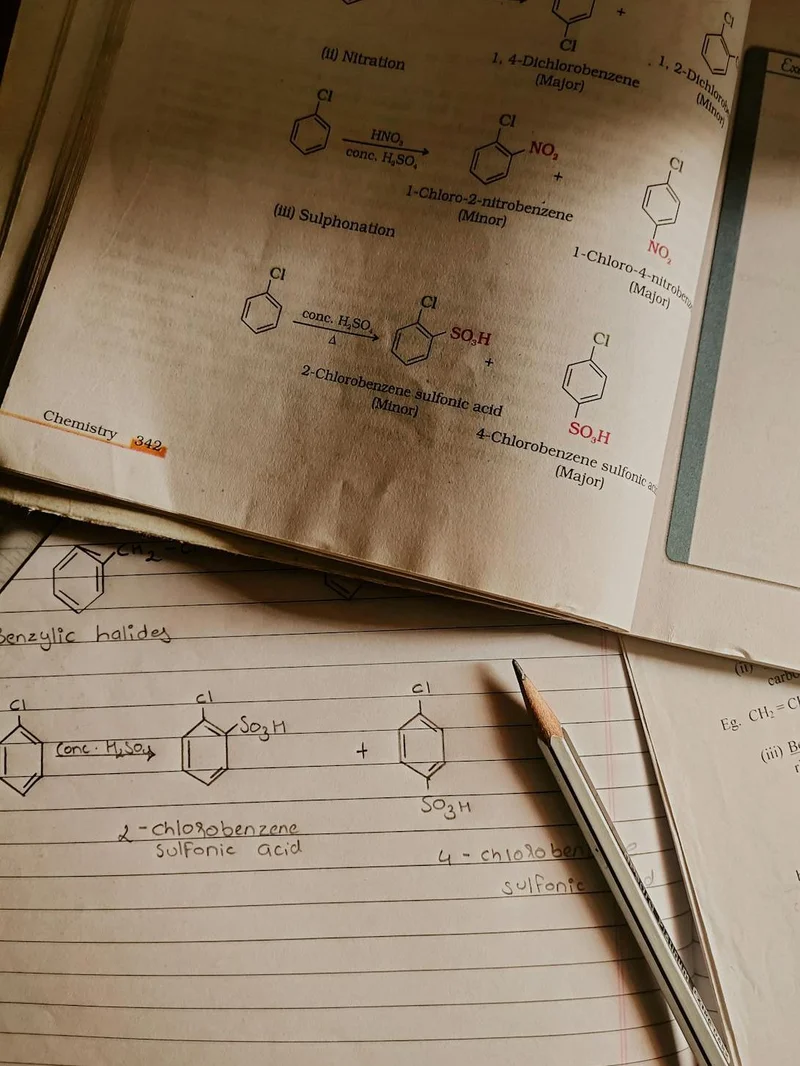 Cl
+
Cl
Cl
1, 4-Dichlorobenzene
(Major)
1, 2-Dichlorob
(Minor)
(ii) Nitration
Cl
HNO₃
conc. H₂SO₄
Cl
NO₂
+
1-Chloro-2-nitrobenzene
(Minor)
Cl
NO₂
1-Chloro-4-nitrobenz
(Major)
(iii) Sulphonation
Cl
conc. H₂SO₄
Δ
Cl
SO₃H
+
2-Chlorobenzene sulfonic acid
(Minor)
Cl
SO₃H
4-Chlorobenzene sulfonic ac
(Major)
Chemistry 342
CH₂-
Benzylic halides
Cl
Conc. H₂SO₄
Cl
SO₃H
+
Cl
SO₃H
2-chlorobenzene
sulfonic acid
4-chloroben
sulfonic
d
(ii)
carb
Eg. CH₂=C
(iii) B